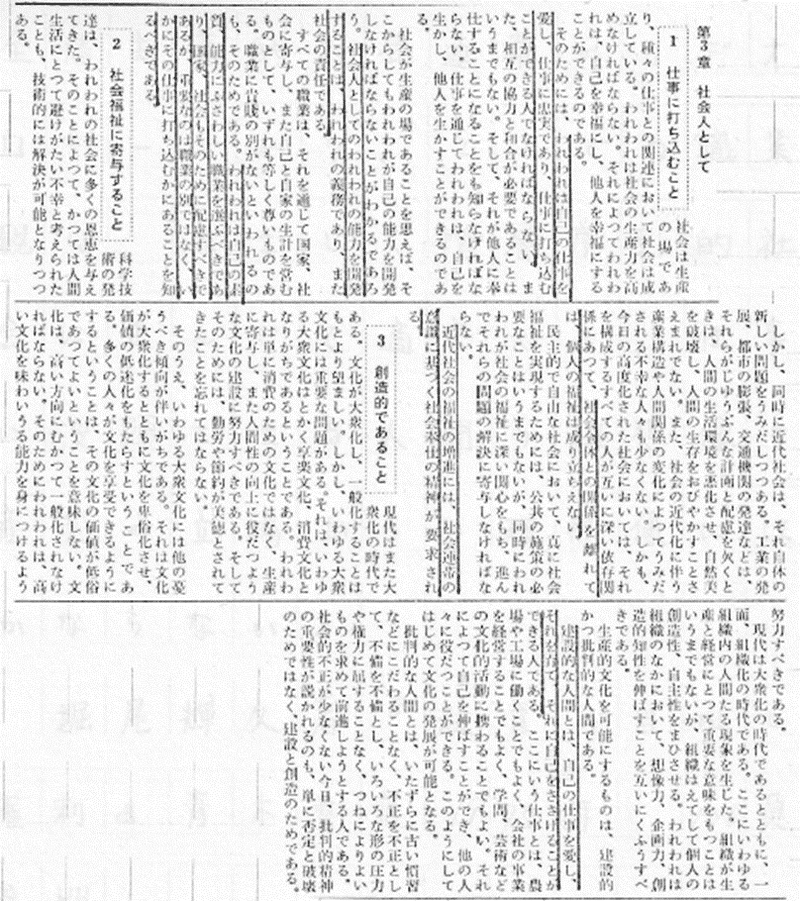 第3章 社会人として
1 仕事に打ち込むこと
社会は生産
の場であ
り、種々の仕事との関連において社会は成
立している。われわれは社会の生産力を高
めなければならない。それによつてわれわ
れは、自己を幸福にし、他人を幸福にする
ことができるのである。
そのためには、われわれは自己の仕事を
愛し、仕事に忠実であり、仕事に打ち込む
ことができる人でなければならない。ま
た、相互の協力と和合が必要であることは
いうまでもない。そして、それが他人に奉
仕することになることをも知らなければな
らない。仕事を通じてわれわれは、自己を
生かし、他人を生かすことができるのであ
る。
社会が生産の場であることを思えば、そ
こからしてもわれわれが自己の能力を開発
しなければならないことがわかるであろ
う。社会人としてのわれわれの能力を開発
することは、われわれの義務であり、また
社会の責任である。
すべての職業は、それを通じて国家、社
会に寄与し、また自己と自家の生計を営む
ものとして、いずれも等しく尊いものであ
る。職業に貴賤の別がないといわれるの
も、そのためである。われわれは自己の素
質、能力にふさわしい職業を選ぶべきであ
り、国家、社会もそのために配慮すべきで
あるが、重要なのは職業の別ではなく、い
かにその仕事に打ち込むかにあることを知
るべきである。
2 社会福祉に寄与すること
科学技
術の発
達は、われわれの社会に多くの恩恵を与え
てきた。そのことによつて、かつては人間
生活にとつて避けがたい不幸と考えられた
ことも、技術的には解決が可能となりつつ
ある。
しかし、同時に近代社会は、それ自体の
新しい問題をうみだしつつある。工業の発
展、都市の膨張、交通機関の発達などは、
それらがじゆうぶんな計画と配慮を欠くと
きは、人間の生活環境を悪化させ、自然美
を破壊し、人間の生存をおびやかすことさ
えまれでない。また、社会の近代化に伴う
産業構造や人間関係の変化によつてうみだ
される不幸な人々も少なくない。しかも、
今日の高度化された社会においては、それ
を構成するすべての人が互いに深い依存関
係にあつて、社会全体との関係を離れて
は、個人の福祉は成り立ちえない。
民主的で自由な社会において、真に社会
福祉を実現するためには、公共の施策の必
要なことはいうまでもないが、同時にわれ
われが社会の福祉に深い関心をもち、進ん
でそれらの問題の解決に寄与しなければな
らない。
近代社会の福祉の増進には、社会連帯の
意識に基づく社会奉仕の精神が要求され
る。
3 創造的であること
現代はまた大
衆化の時代で
ある。文化が大衆化し、一般化することは
もとより望ましい。しかし、いわゆる大衆
文化には重要な問題がある。それは、いわゆ
る大衆文化はとかく享楽文化、消費文化と
なりがちであるということである。われわ
れは単に消費のための文化ではなく、生産
に寄与し、また人間性の向上に役だつよう
な文化の建設に努力すべきである。そして
そのためには、勤労や節約が美徳とされて
きたことを忘れてはならない。
そのうえ、いわゆる大衆文化には他の憂
うべき傾向が伴いがちである。それは文化
が大衆化するとともに文化を卑俗化させ、
価値の低迷化をもたらすということであ
る。多くの人々が文化を享受できるように
するということは、その文化の価値が低俗
であつてよいということを意味しない。文
化は、高い方向にむかつて一般化されなけ
ればならない。そのためにわれわれは、高
い文化を味わいうる能力を身につけるよう
努力すべきである。
現代は大衆化の時代であるとともに、一
面、組織化の時代である。ここにいわゆる
組織内の人間たる現象を生じた。組織が生
産と経営にとつて重要な意味をもつことは
いうまでもないが、組織はえてして個人の
創造性、自主性をまひさせる。われわれは
組織のなかにおいて、想像力、企画力、創
造的知性を伸ばすことを互いにくふうすべ
きである。
生産的文化を可能にするものは、建設的
かつ批判的な人間である。
建設的な人間とは、自己の仕事を愛し、
それを育て、それに自己をささげることが
できる人である。ここにいう仕事とは、農
場や工場に働くことでもよく、会社の事業
を経営することでもよく、学問、芸術など
の文化的活動に携わることでもよい。それ
によつて自己を伸ばすことができ、他の人
々に役だつことができる。このようにして
はじめて文化の発展が可能となる。
批判的な人間とは、いたずらに古い慣習
などにこだわることなく、不正を不正とし
て、不備を不備とし、いろいろな形の圧力
や権力に屈することなく、つねによりよい
ものを求めて前進しようとする人である。
社会的不正が少なくない今日、批判的精神
の重要性が説かれるのも、単に否定と破壊
のためではなく、建設と創造のためである。